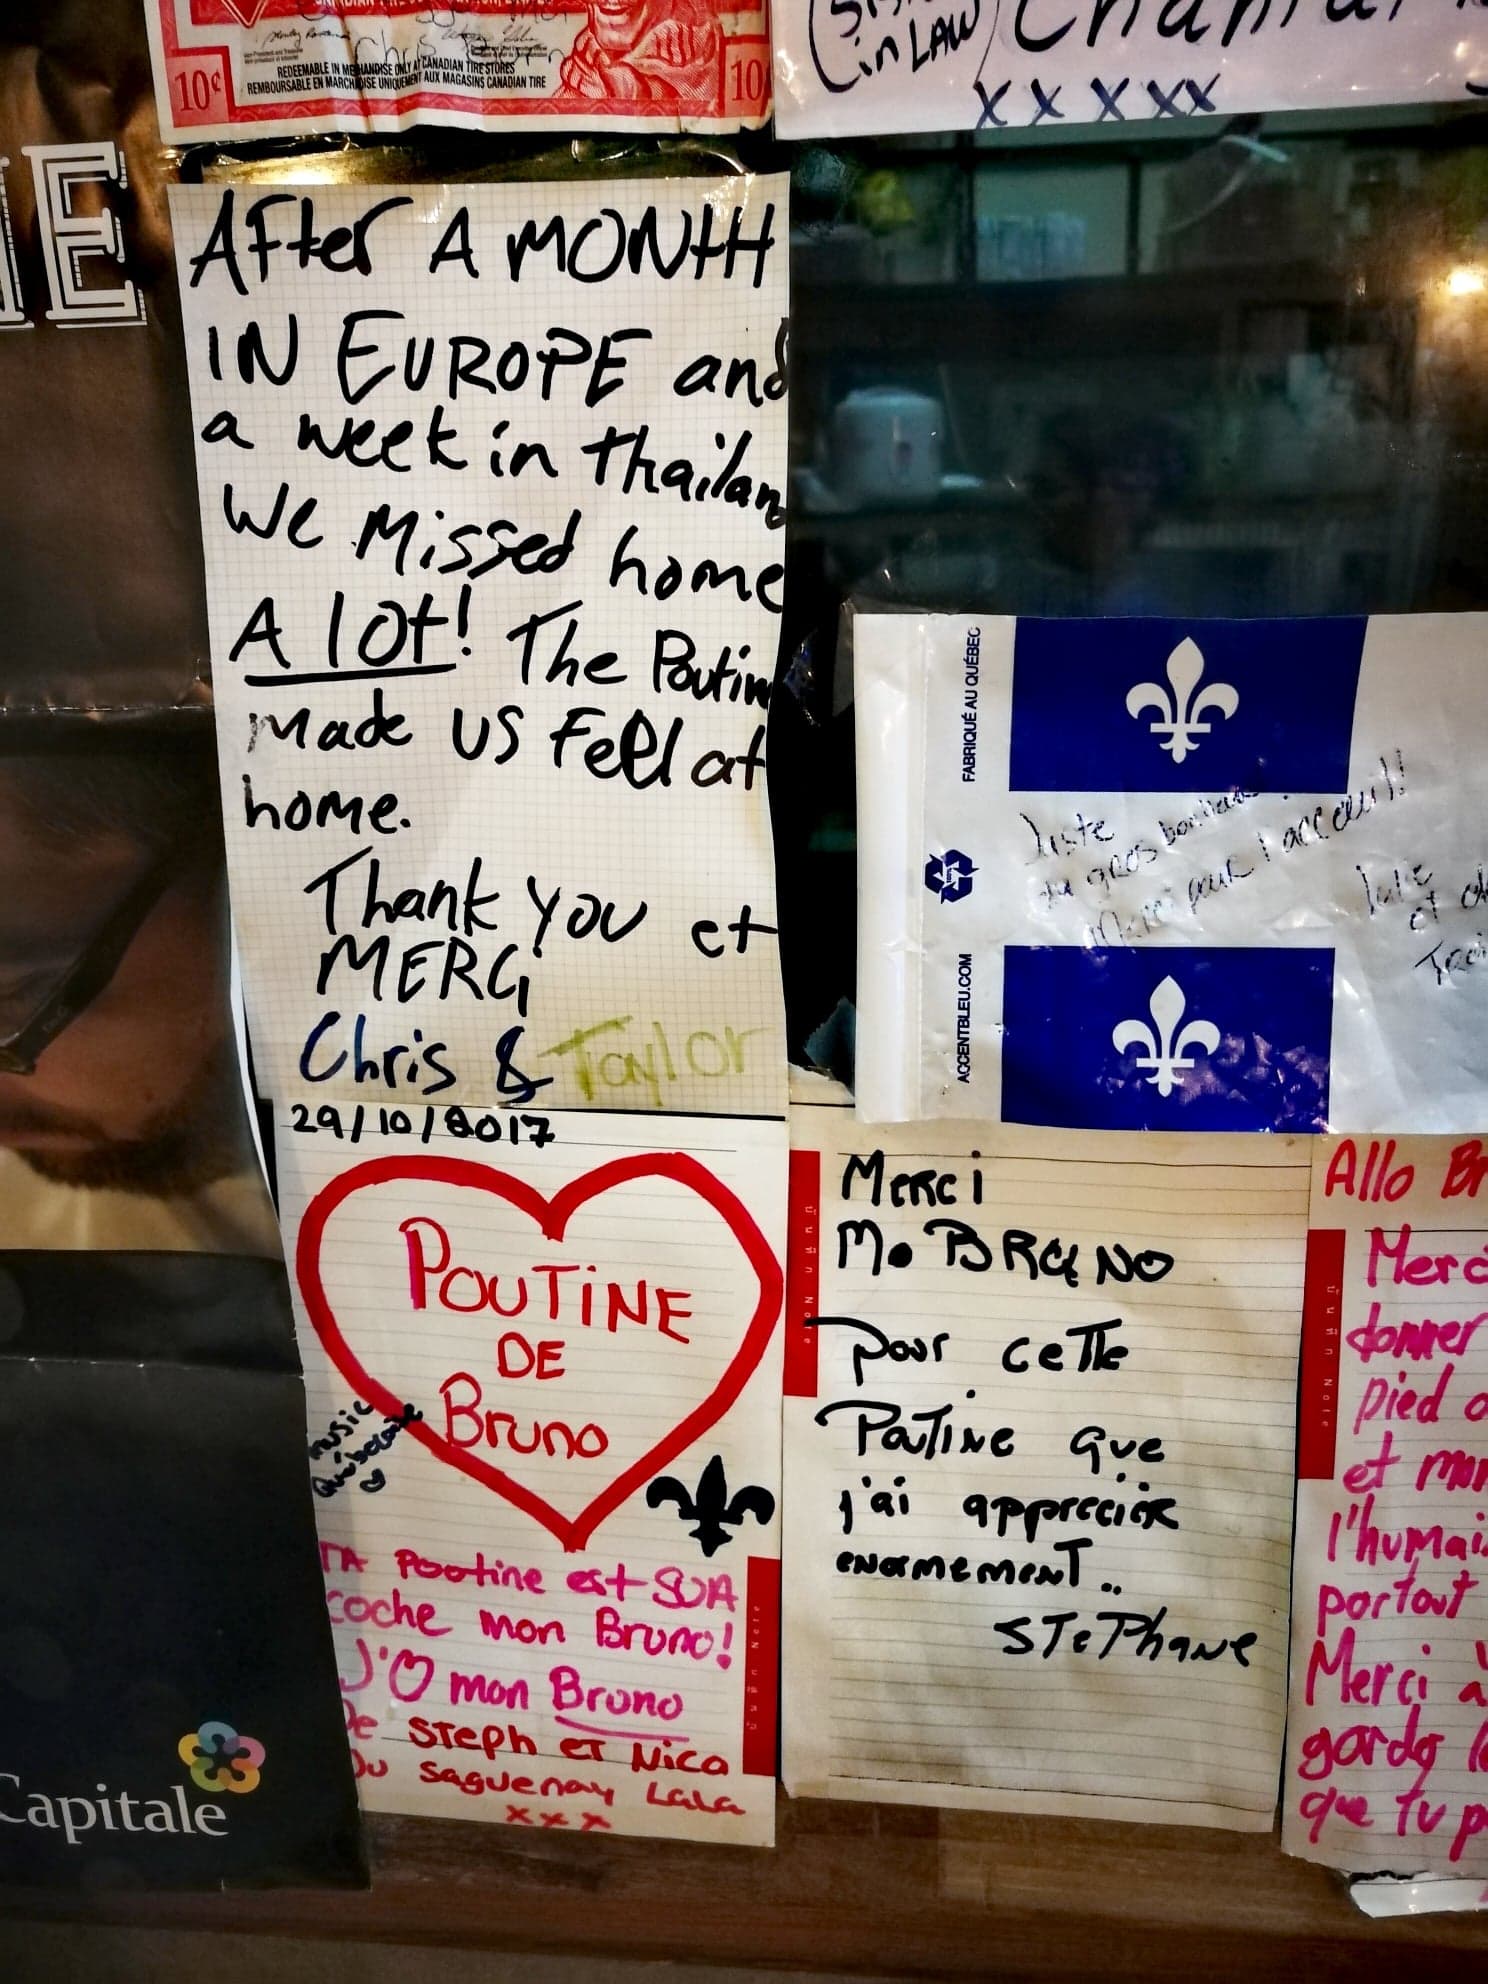 10¢
REDEEMABLE IN MERCHANDISE ONLY AT CANADIAN TIRE STORES
REMBOURSABLE EN MARCHANDISE UNIQUEMENT AUX MAGASINS CANADIAN TIRE
10
in LAW
x x x x x
E
AFter A MONtH
IN EUROPE and
a week in thailand
We Missed home
A lot! The Poutine
made us Feel at
home.
Thank you et
MERCi
Chris & Taylor
FABRIQUÉ AU QUÉBEC
ACCENTBLEU.COM
Juste
du gros bonheur!
Merci pour l'acceuil!
Julie
et
29/10/2017
POUTiNE
DE
Bruno
music
Québecoise
TA Pootine est SUA
coche mon Bruno!
J'O mon Bruno
De Steph et Nico
Du Saguenay LaLa
x x x
Merci
M. BRUNO
pour cette
Poutine que
j'ai apprécier
enormement..
STéPhane
Allo Br
Merc
donner
pied
et mon
l'humai
partout
Merci à
garde
que tu p
Capitale